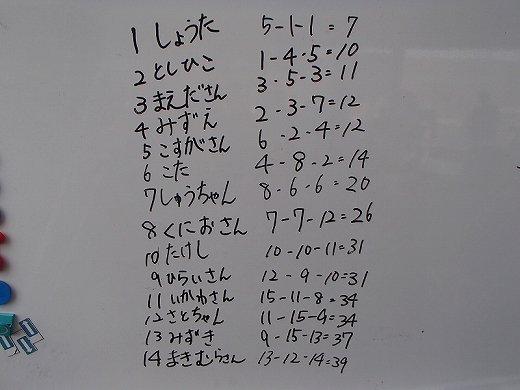 1 しょうた 5-1-1=7
2 としひこ 1-4-5=10
3 まえださん 3-5-3=11
4 みずえ 2-3-7=12
5 こすがさん 6-2-4=12
6 こた 4-8-2=14
7 しゅうちゃん 8-6-6=20
8 くにおさん 7-7-12=26
10 たけし 10-10-11=31
9 ひらいさん 12-9-10=31
11 いかわさん 15-11-8=34
12 さとちゃん 11-15-9=34
13 みずき 9-15-13=37
14 まきむらさん 13-12-14=39